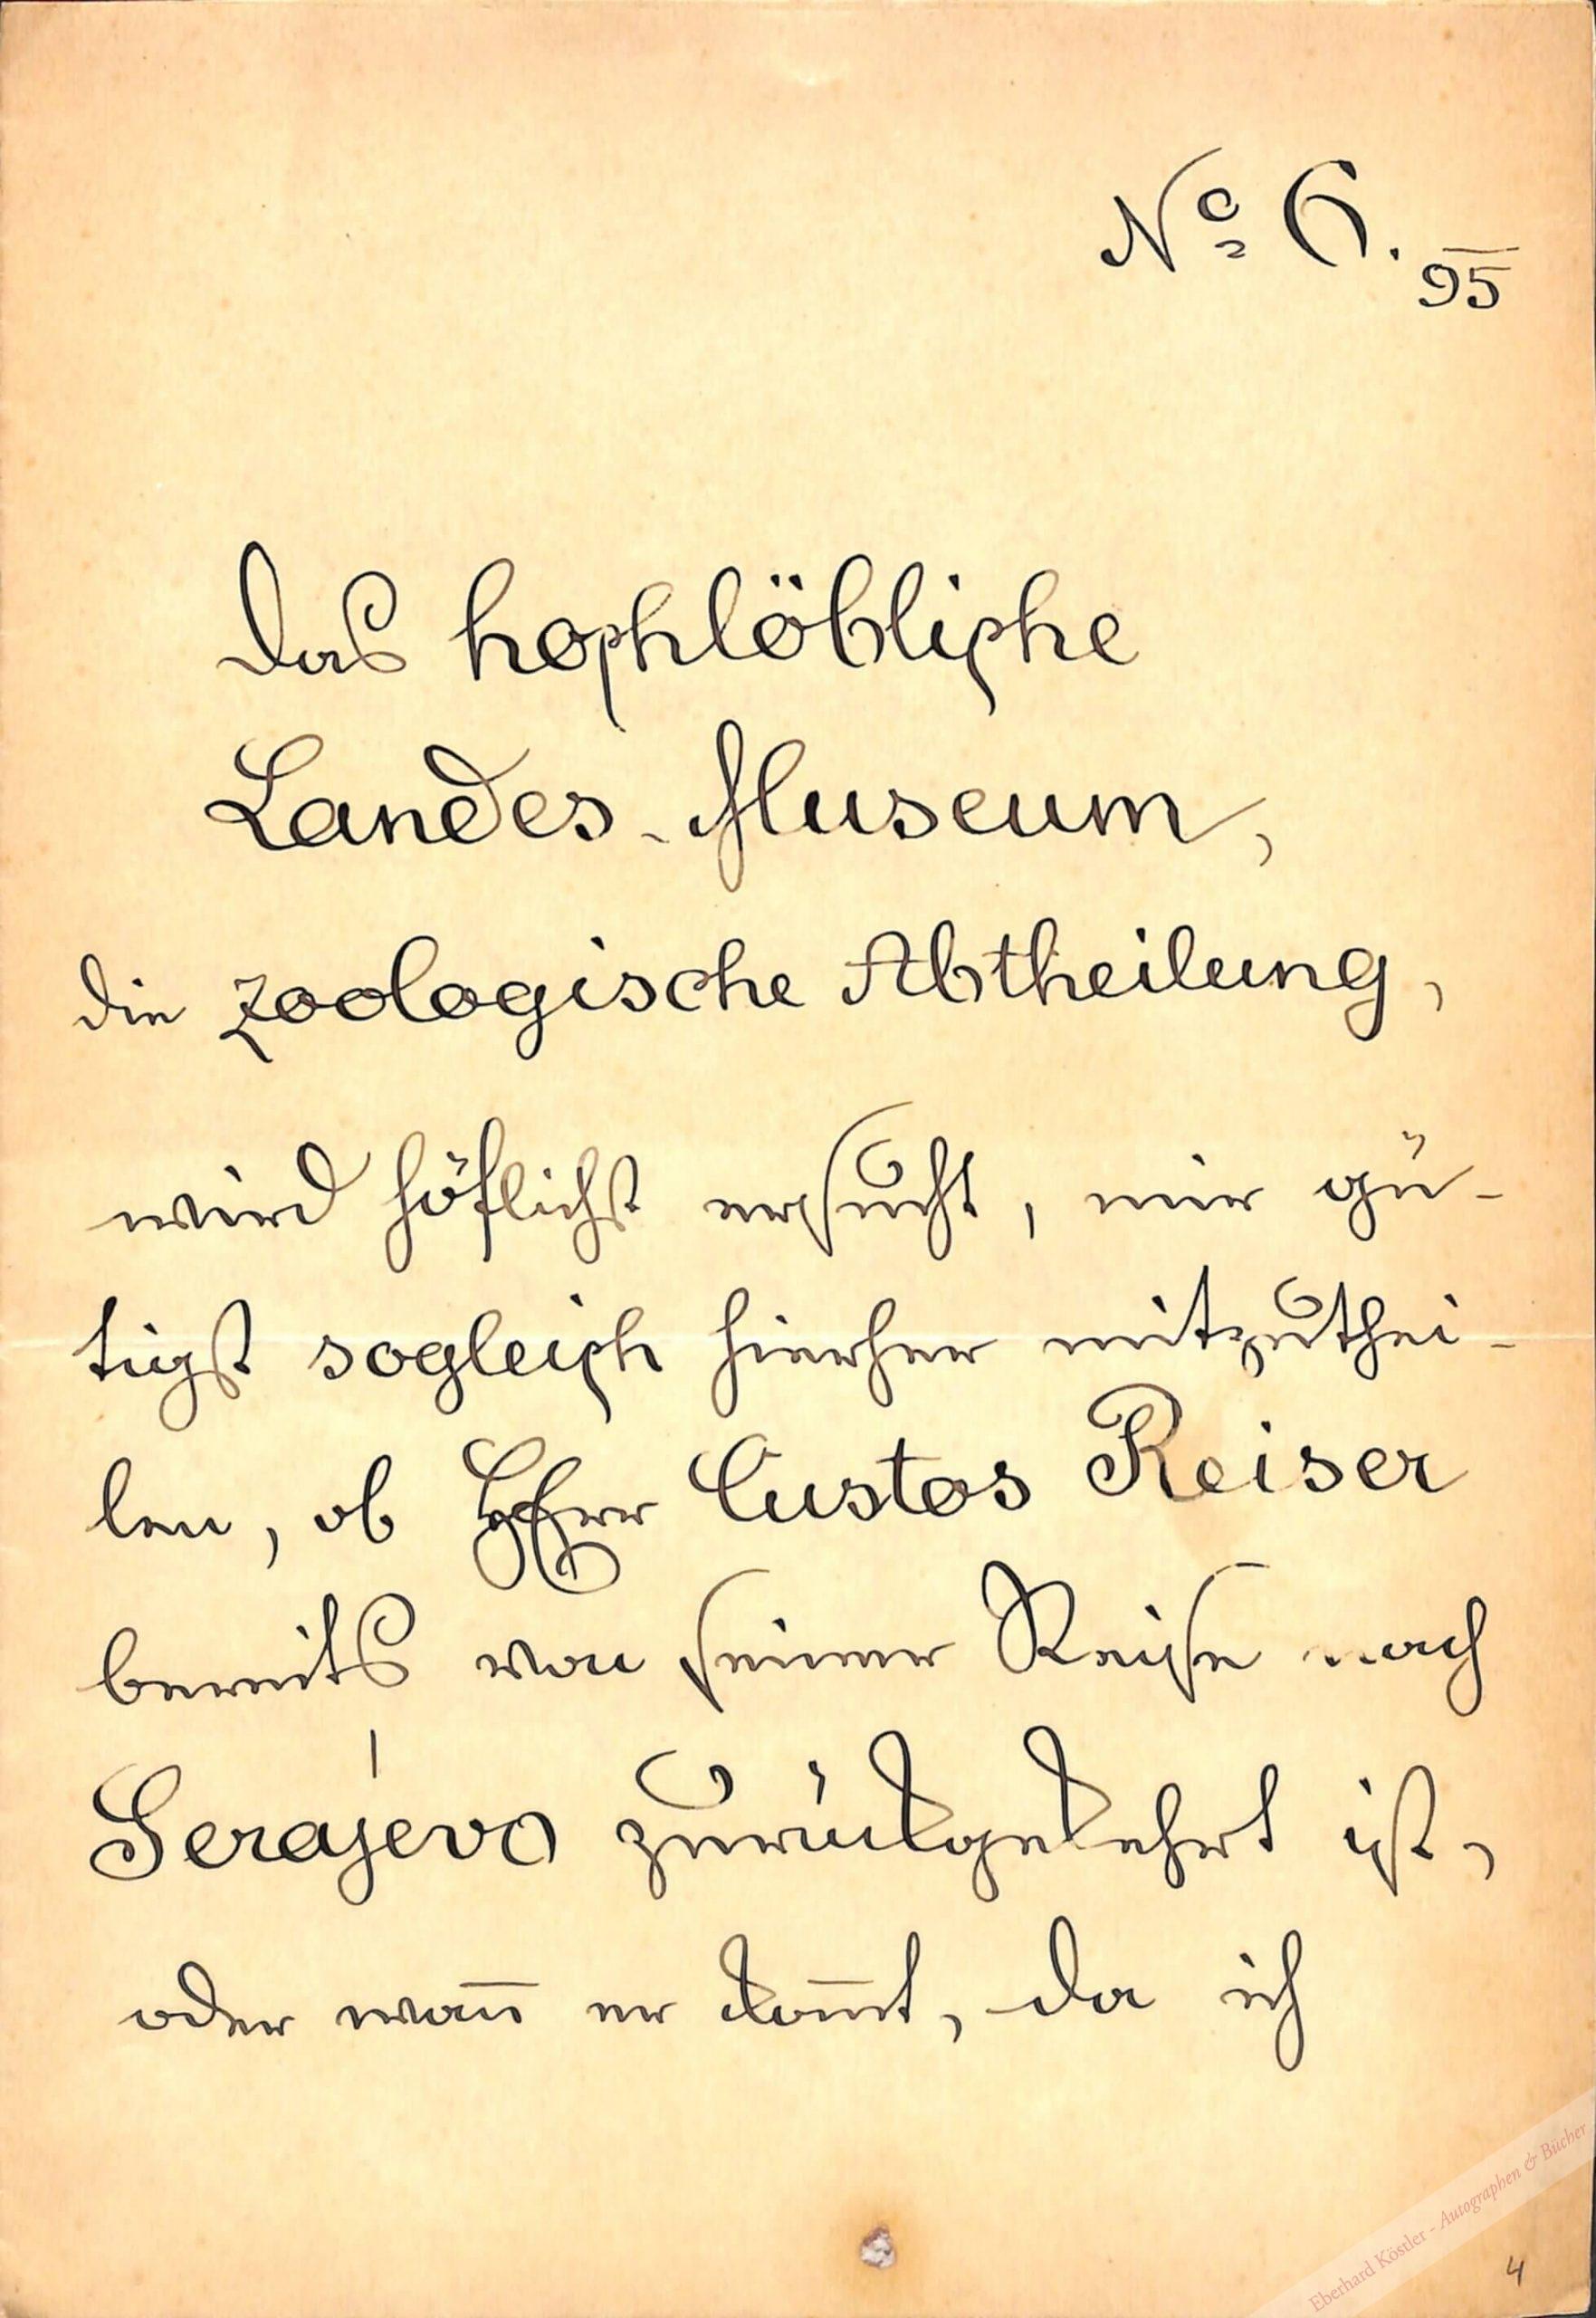 No 6. 95
Das hochlöbliche
Landes-Museum,
die zoologische Abtheilung,
wird höflichst ersucht, mir gü-
tigst sogleich hierher mitzuthei-
len, ob Herr Custos Reiser
bereits von seiner Reise nach
Serajevo zurückgekehrt ist,
oder wan̄ er kom̄t, da ich
Eberhard Köstler - Autographen & Bücher
4